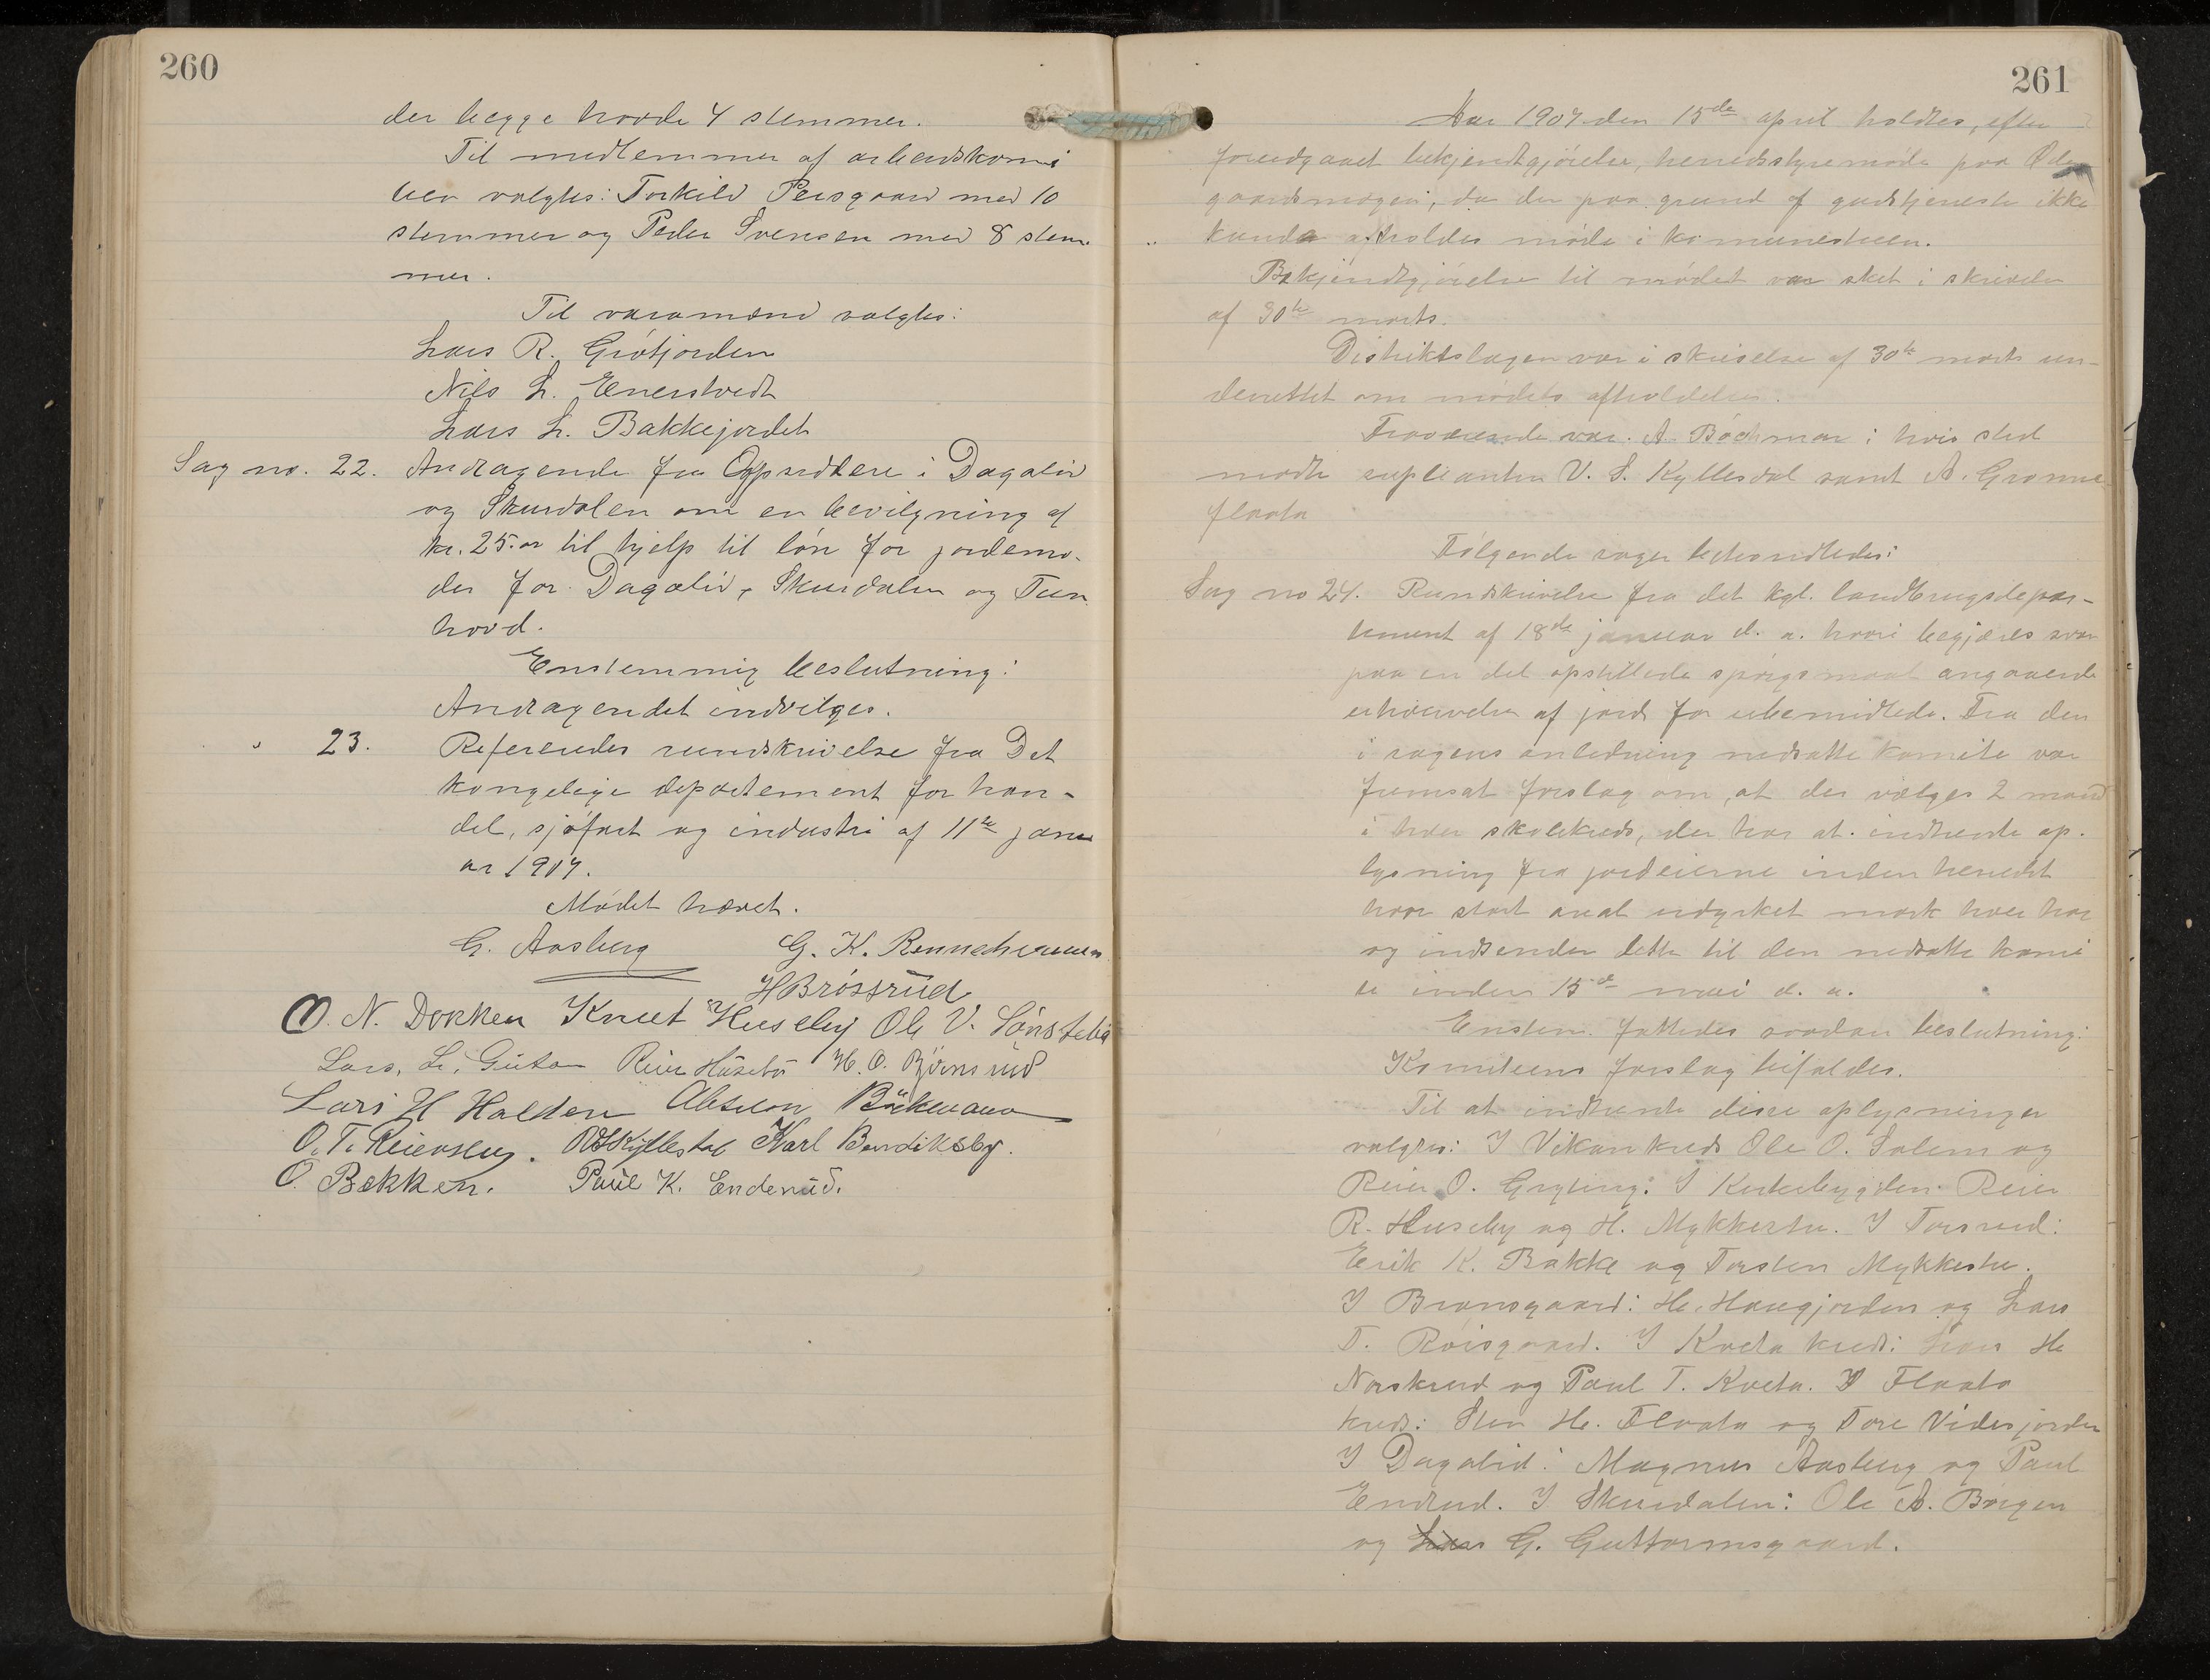 260
der begge havde 4 stemmer.
Til medlemmer af arbeidskomi
teen valgtes: Torkild Persgaard med 10
stemmer og Peder Svensen med 8 stem-
mer.
Til varamænd valgtes:
Lars R. Grötjorden
Nils L. Enerstvedt
Lars L. Bakkejordet
Sag no. 22. Andragende fra Opsiddere i Dagalid
og Skurdalen om en bevilgning af
kr. 25.00 til hjelp til løn for jordemo-
der for Dagalid, Skurdalen og Tun
hovd.
Enstemmig beslutning:
Andragendet indvilges.
" 23. Refereredes rundskrivelse fra Det
kongelige departement for han-
del, sjøfart og industri af 11te janu
ar 1907.
Mødet hævet.
G. Aasberg G. K. Bennehvamm
H Brøstrud
O. N. Dokken Knut Huseby Ole V. Sønstebø
Lars. L. Guton Reier Hüsebö H. O. Björnsrud
Lars H Halden Abselon Bäckmann
O. T. Reiersen. OH Kyllesdal Karl Bendiksby.
O. Bekken. Paul K. Enderud.
261
Aar 1907 den 15de april holdtes, efter
forudgaaet bekjendtgjørelse, herredsstyremøde paa
gaardsmogen, da der paa grund af gudstjeneste ikke
kunde afholdes møde i komunestuen.
Bekjendtgjørelse til mødet var sket i skrivelse
af 30te marts.
Distriktslægen var i skrivelse af 30te marts un-
derrettet om mødets afholdelse.
Fraværende var. A. Bächman i hvis sted
mødte suplianten V. S. Kyllesdal samt A. Grønne
flaata
Følgende sager behandledes:
Sag no 24. Rundskrivelse fra det kgl. landbrugsdepar-
tement af 18de januar d. a. hvori begjæres svar
paa en del opstillede spørgsmaal angaaende
erhvervelse af jord for ubemidlede. Fra den
i sagens anledning nedsatte komite var
fremsat forslag om, at der vælges 2 mænd
i hver skolekreds, der har at indhente op-
lysning fra jordeierne inden herredet
hvor stort areal udyrket mark hver har
og indsender dette til den nedsatte komi
te inden 15de mai d. a.
Enstem. fattedes saadan beslutning:
Komiteens forslag bifaldes.
Til at indhente disse oplysninger
valgtes: I Vikan kreds Ole O. Solem og
Reier O. Gryting: I Kirkebygden Reier
R. Huseby og H. Mykkestu. I Torsrud:
Erik K. Bakke og Torsten Mykkestu.
I Brønsgaard: H. Haugjorden og Lars
T. Roisgaard. I Kveta kreds: Lars H.
Norskrud og Paul T. Kveta. I Flaata
kreds: Sten H. Flaata og Tore Vidersjorden
I Dagalid: Magnus Aasberg og Paul
Endrud. I Skurdalen: Ole A. Børgen
og Lars G. Guttormsgaard.